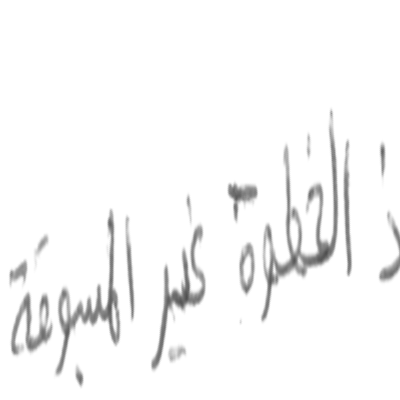 ذ الخطوة غير المسبوقة